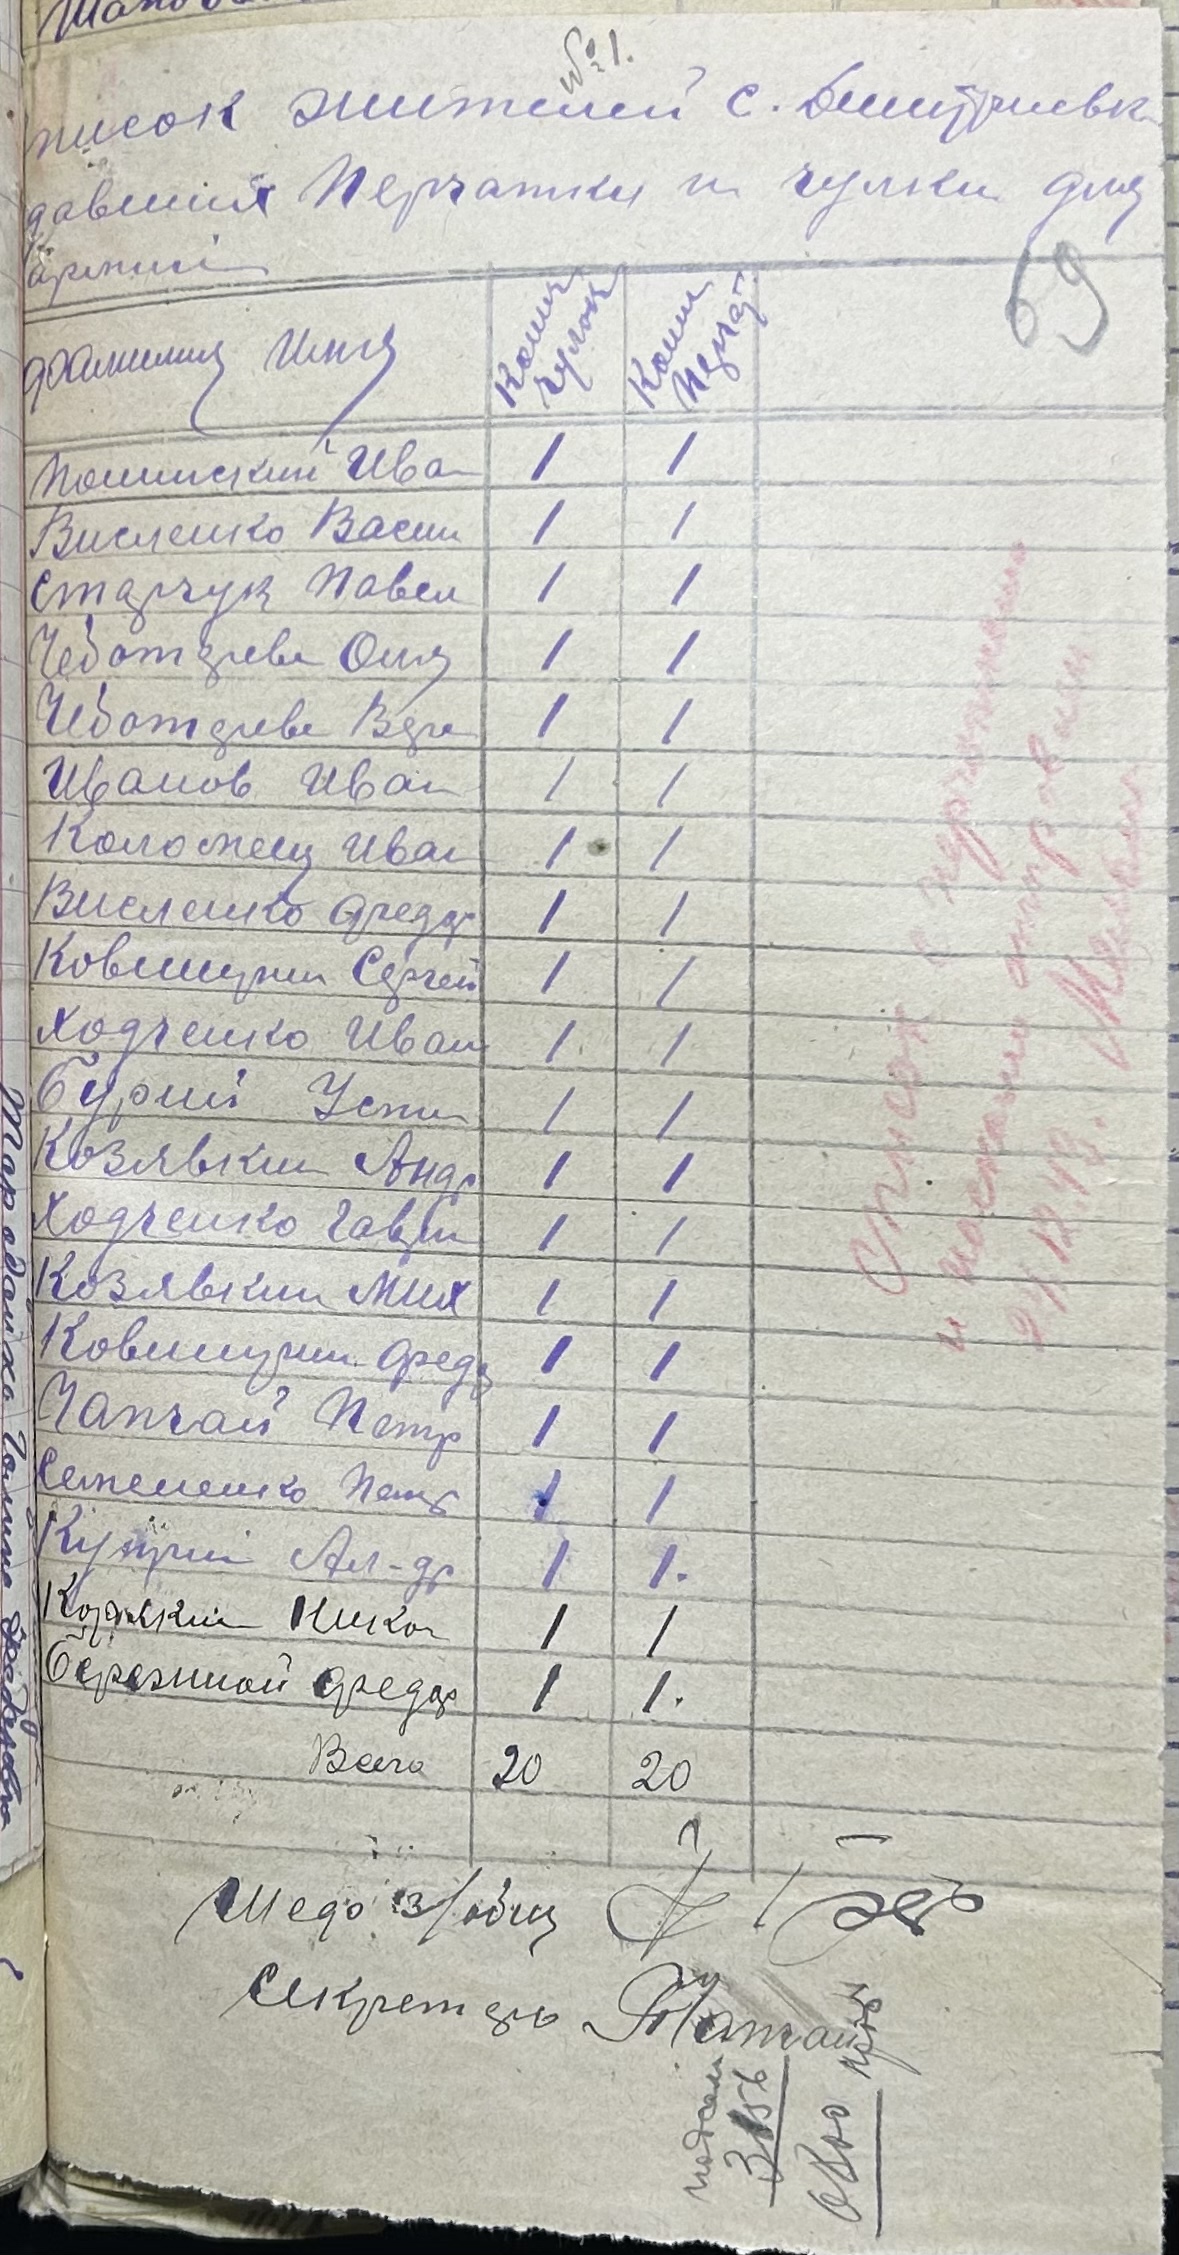 № 1.
писок жителей с. Дмитриевк
давших Перчатки и чулки для
армии
69
Фамилия Имя Колич чулок Колич Перчат.
Иван 1 1
Висленко Васил 1 1
Старчук Павел 1 1
Чеботарева Ольга 1 1
Чеботарева Вера 1 1
Иванов Иван 1 1
Коломеец Иван 1 1
Висленко Федор 1 1
Ковшушин Сергей 1 1
Ходченко Иван 1 1
Бурий Усти 1 1
Козявкин Андр 1 1
Ходченко Гаври 1 1
Козявкин Мих 1 1
Ковшушин Федр 1 1
Чапчай Петр 1 1
Семененко Петр 1 1
Куприй Ал-др 1 1.
Никол 1 1
Бережной Федор 1 1.
Всего 20 20
Секретарь
Список с перчатками
и носками отправили